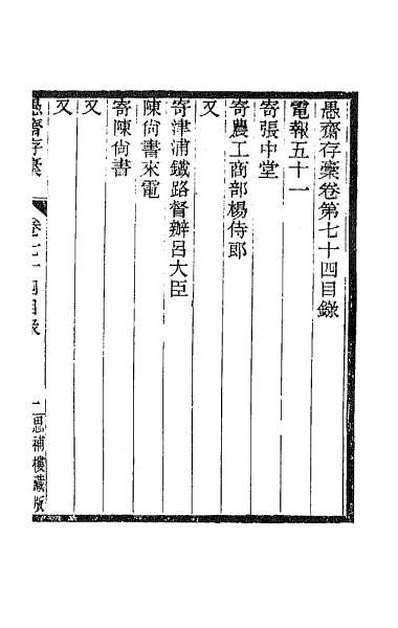 愚齋存稾卷第七十四目錄
電報五十一
寄張中堂
寄農工商部楊侍郎
又
寄津浦鐵路督辦呂大臣
陳尙書來電
寄陳尙書
又
又
愚齋存稾 卷七十四目錄 一 思補樓藏版